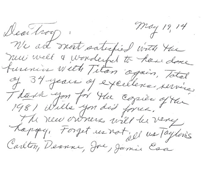 May 19, 14
Dear Troy,
We are most satisfied with the
new well & wonderful to have done
business with Titan again, total
of 34 years of excellent service.
Thank you for the copies of the
1981 wells you did for us.
The new owners will be very
happy. Forget us not, all us Taylors
Carlton, Deanne, Joe, Jamie